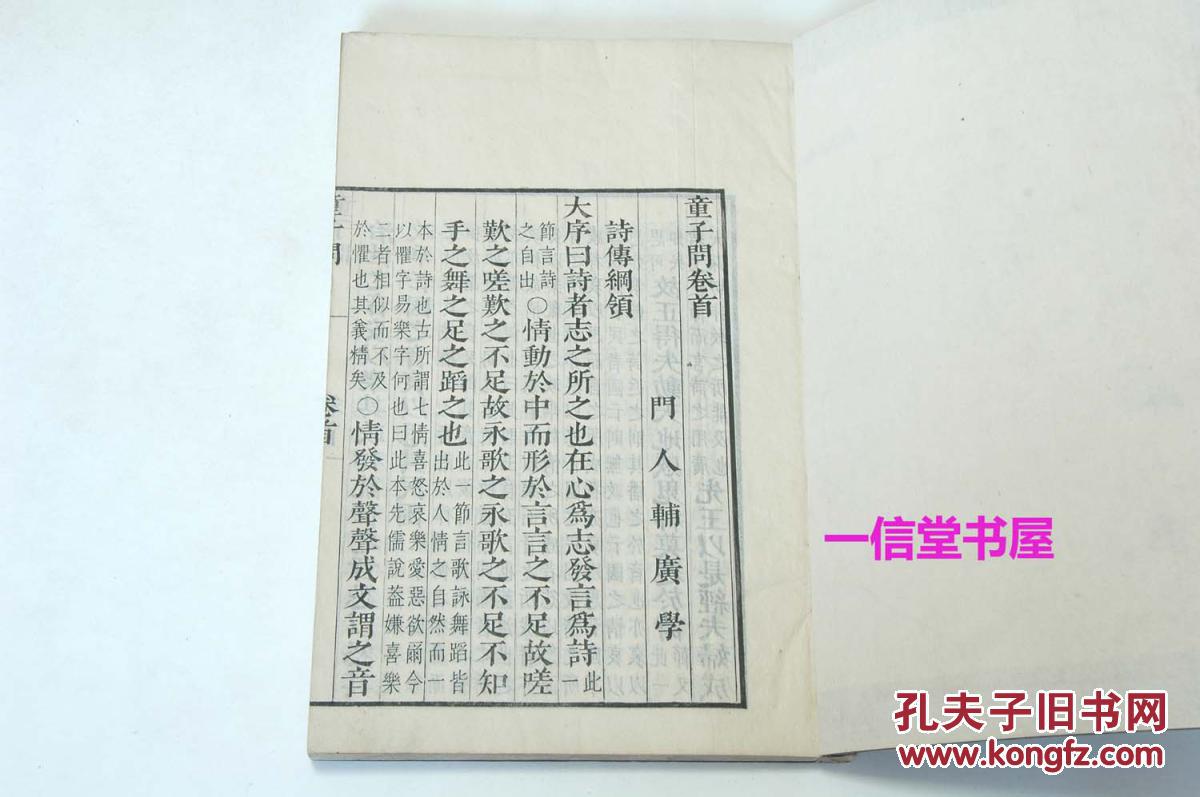 童子問卷首
門人輔廣學
詩傳綱領
大序曰詩者志之所之也在心爲志發言爲詩此一
節言詩之自出〇情動於中而形於言言之不足故嗟
歎之嗟歎之不足故永歌之永歌之不足不知
手之舞之足之蹈之也此一節言歌詠舞蹈皆出於人情之自然而一
本於詩也古所謂七情喜怒哀樂愛惡欲爾今以懼字易樂字何也曰此本先儒說葢嫌喜樂
二者相似而不及於懼也其義精矣〇情發於聲聲成文謂之音
童子問
卷首
一信堂书屋
孔夫子旧书网
www.kongfz.com